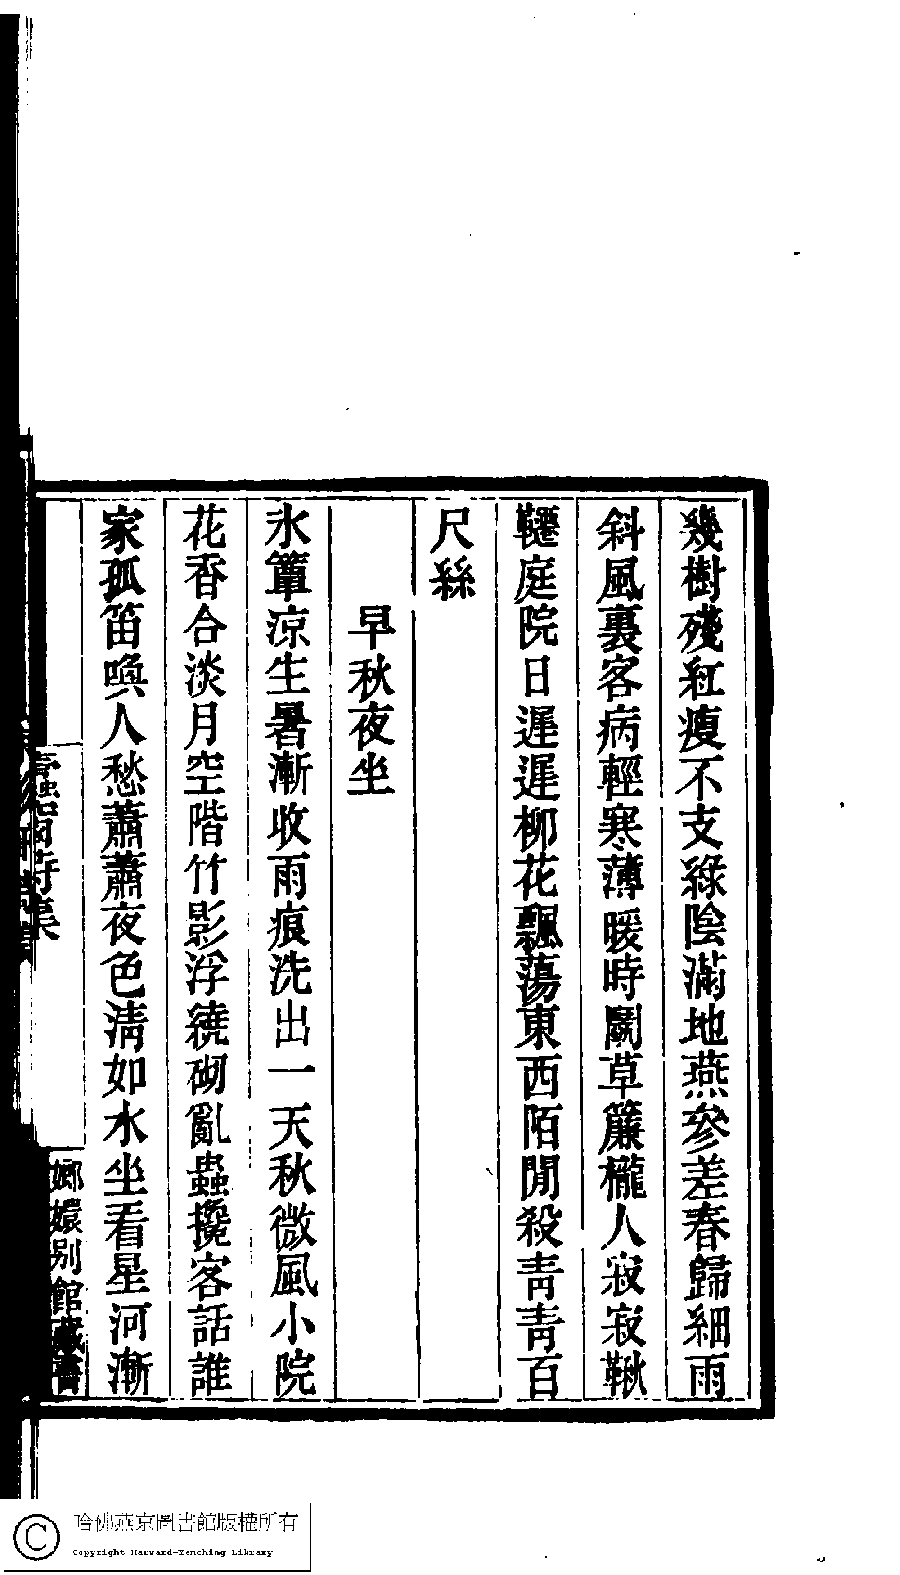 幾樹殘紅瘦不支綠陰滿地燕參差春歸細雨
斜風裏客病輕寒薄暖時鬭草簾櫳人寂寂鞦
韆庭院日遲遲柳花飄蕩東西陌閒殺青青百
尺絲
早秋夜坐
氷簟凉生暑漸收雨痕洗出一天秋微風小院
花香合淡月空階竹影浮繞砌亂蟲攙客話誰
家孤笛喚人愁蕭蕭夜色淸如水坐看星河漸
蠹窗詩集
嫏嬛别館藏書
哈佛燕京圖書館版權所有
Copyright Harvard-Yenching Library